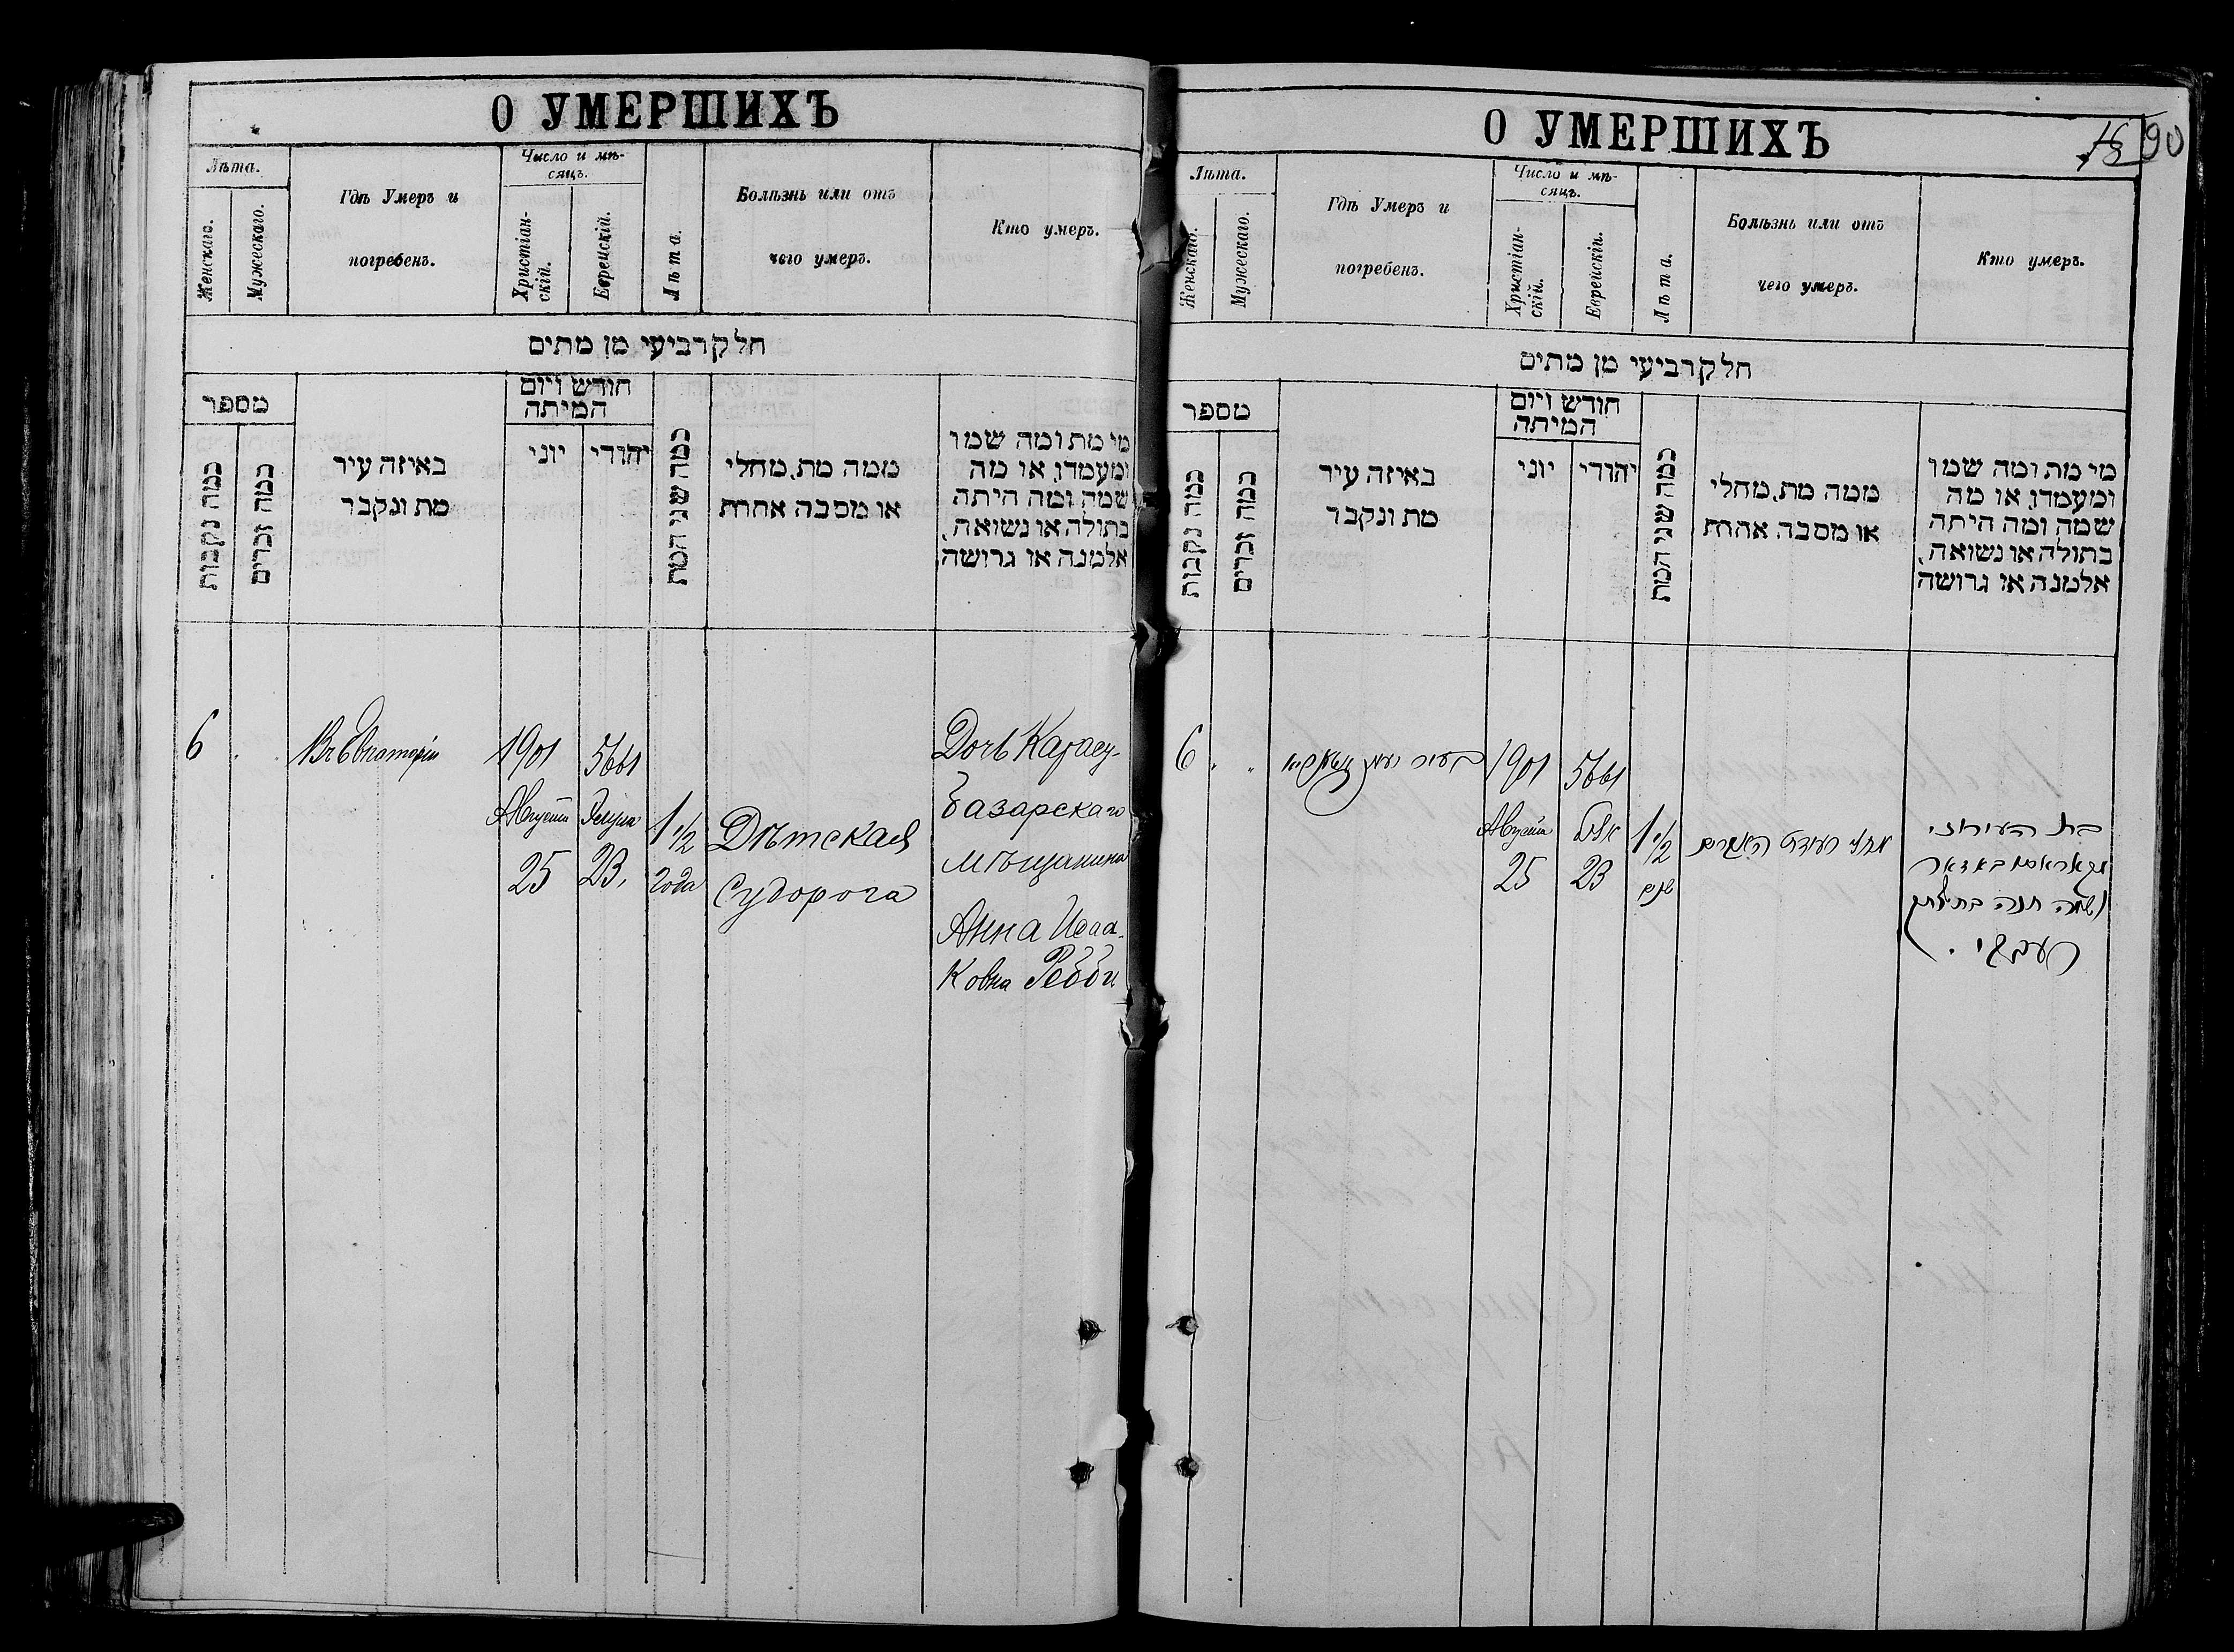 О УМЕРШИХЪ
Лѣта.
Женскаго.
Мужескаго.
Гдѣ Умеръ и
погребенъ.
Число и мѣ-
сяцъ.
Христіан-
скій.
Еврейскій.
Лѣта.
Болѣзнь или отъ
чего умеръ.
Кто умеръ.
חלק רביעי מן מתים
מספר
כמה נקבות
כמה זכרים
באיזה עיר
מת ונקבר
חודש ויום
המיתה
יוני
יהודי
כמה שני המת
ממה מת, מחלי
או מסבה אחרת
מי מת ומה שמו
ומעמדו, או מה
שמה ומה היתה
בתולה או נשואה,
אלמנה או גרושה
6
Въ Евпаторіи
1901
Августа
25
5661
Элула
23,
1 1/2
года
Дѣтская
Судорога
Дочь Карасу-
базарскаго
мѣщанина
Анна Исаа-
ковна Рабби
О УМЕРШИХЪ
90
Лѣта.
Женскаго.
Мужескаго.
Гдѣ Умеръ и
погребенъ.
Число и мѣ-
сяцъ.
Христіан-
скій.
Еврейскій.
Лѣта.
Болѣзнь или отъ
чего умеръ.
Кто умеръ.
חלק רביעי מן מתים
מספר
כמה נקבות
כמה זכרים
באיזה עיר
מת ונקבר
חודש ויום
המיתה
יוני
יהודי
כמה שני המת
ממה מת, מחלי
או מסבה אחרת
מי מת ומה שמו
ומעמדו, או מה
שמה ומה היתה
בתולה או נשואה,
אלמנה או גרושה
6
בעיר
1901
Августа
25
5661
אלול
23
1 1/2
שנים
מחלי רעידת
בת העירוני
מקאראסובאזאר
ושמה חנה בת יצחק